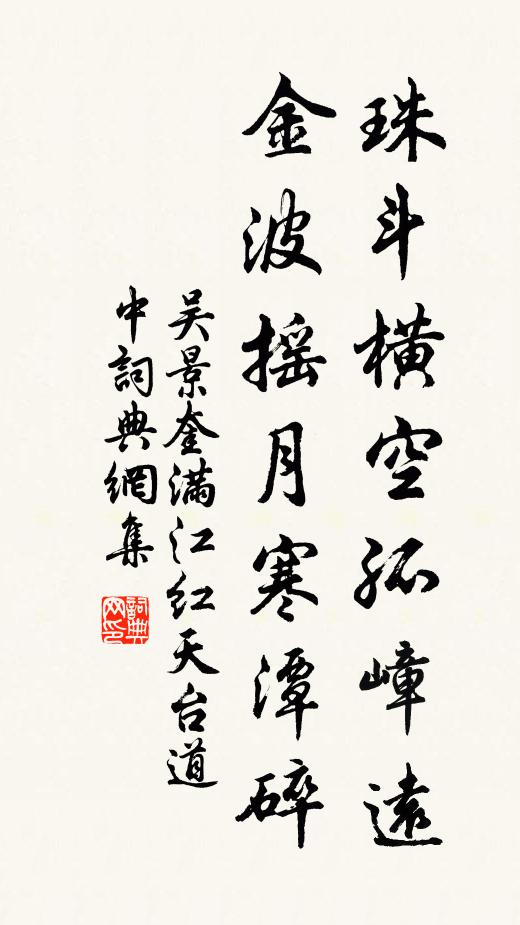 珠斗橫空孤嶂遠
金波搖月寒潭碎
吴景奎满江红天台道
中詞典網集
詞典网印